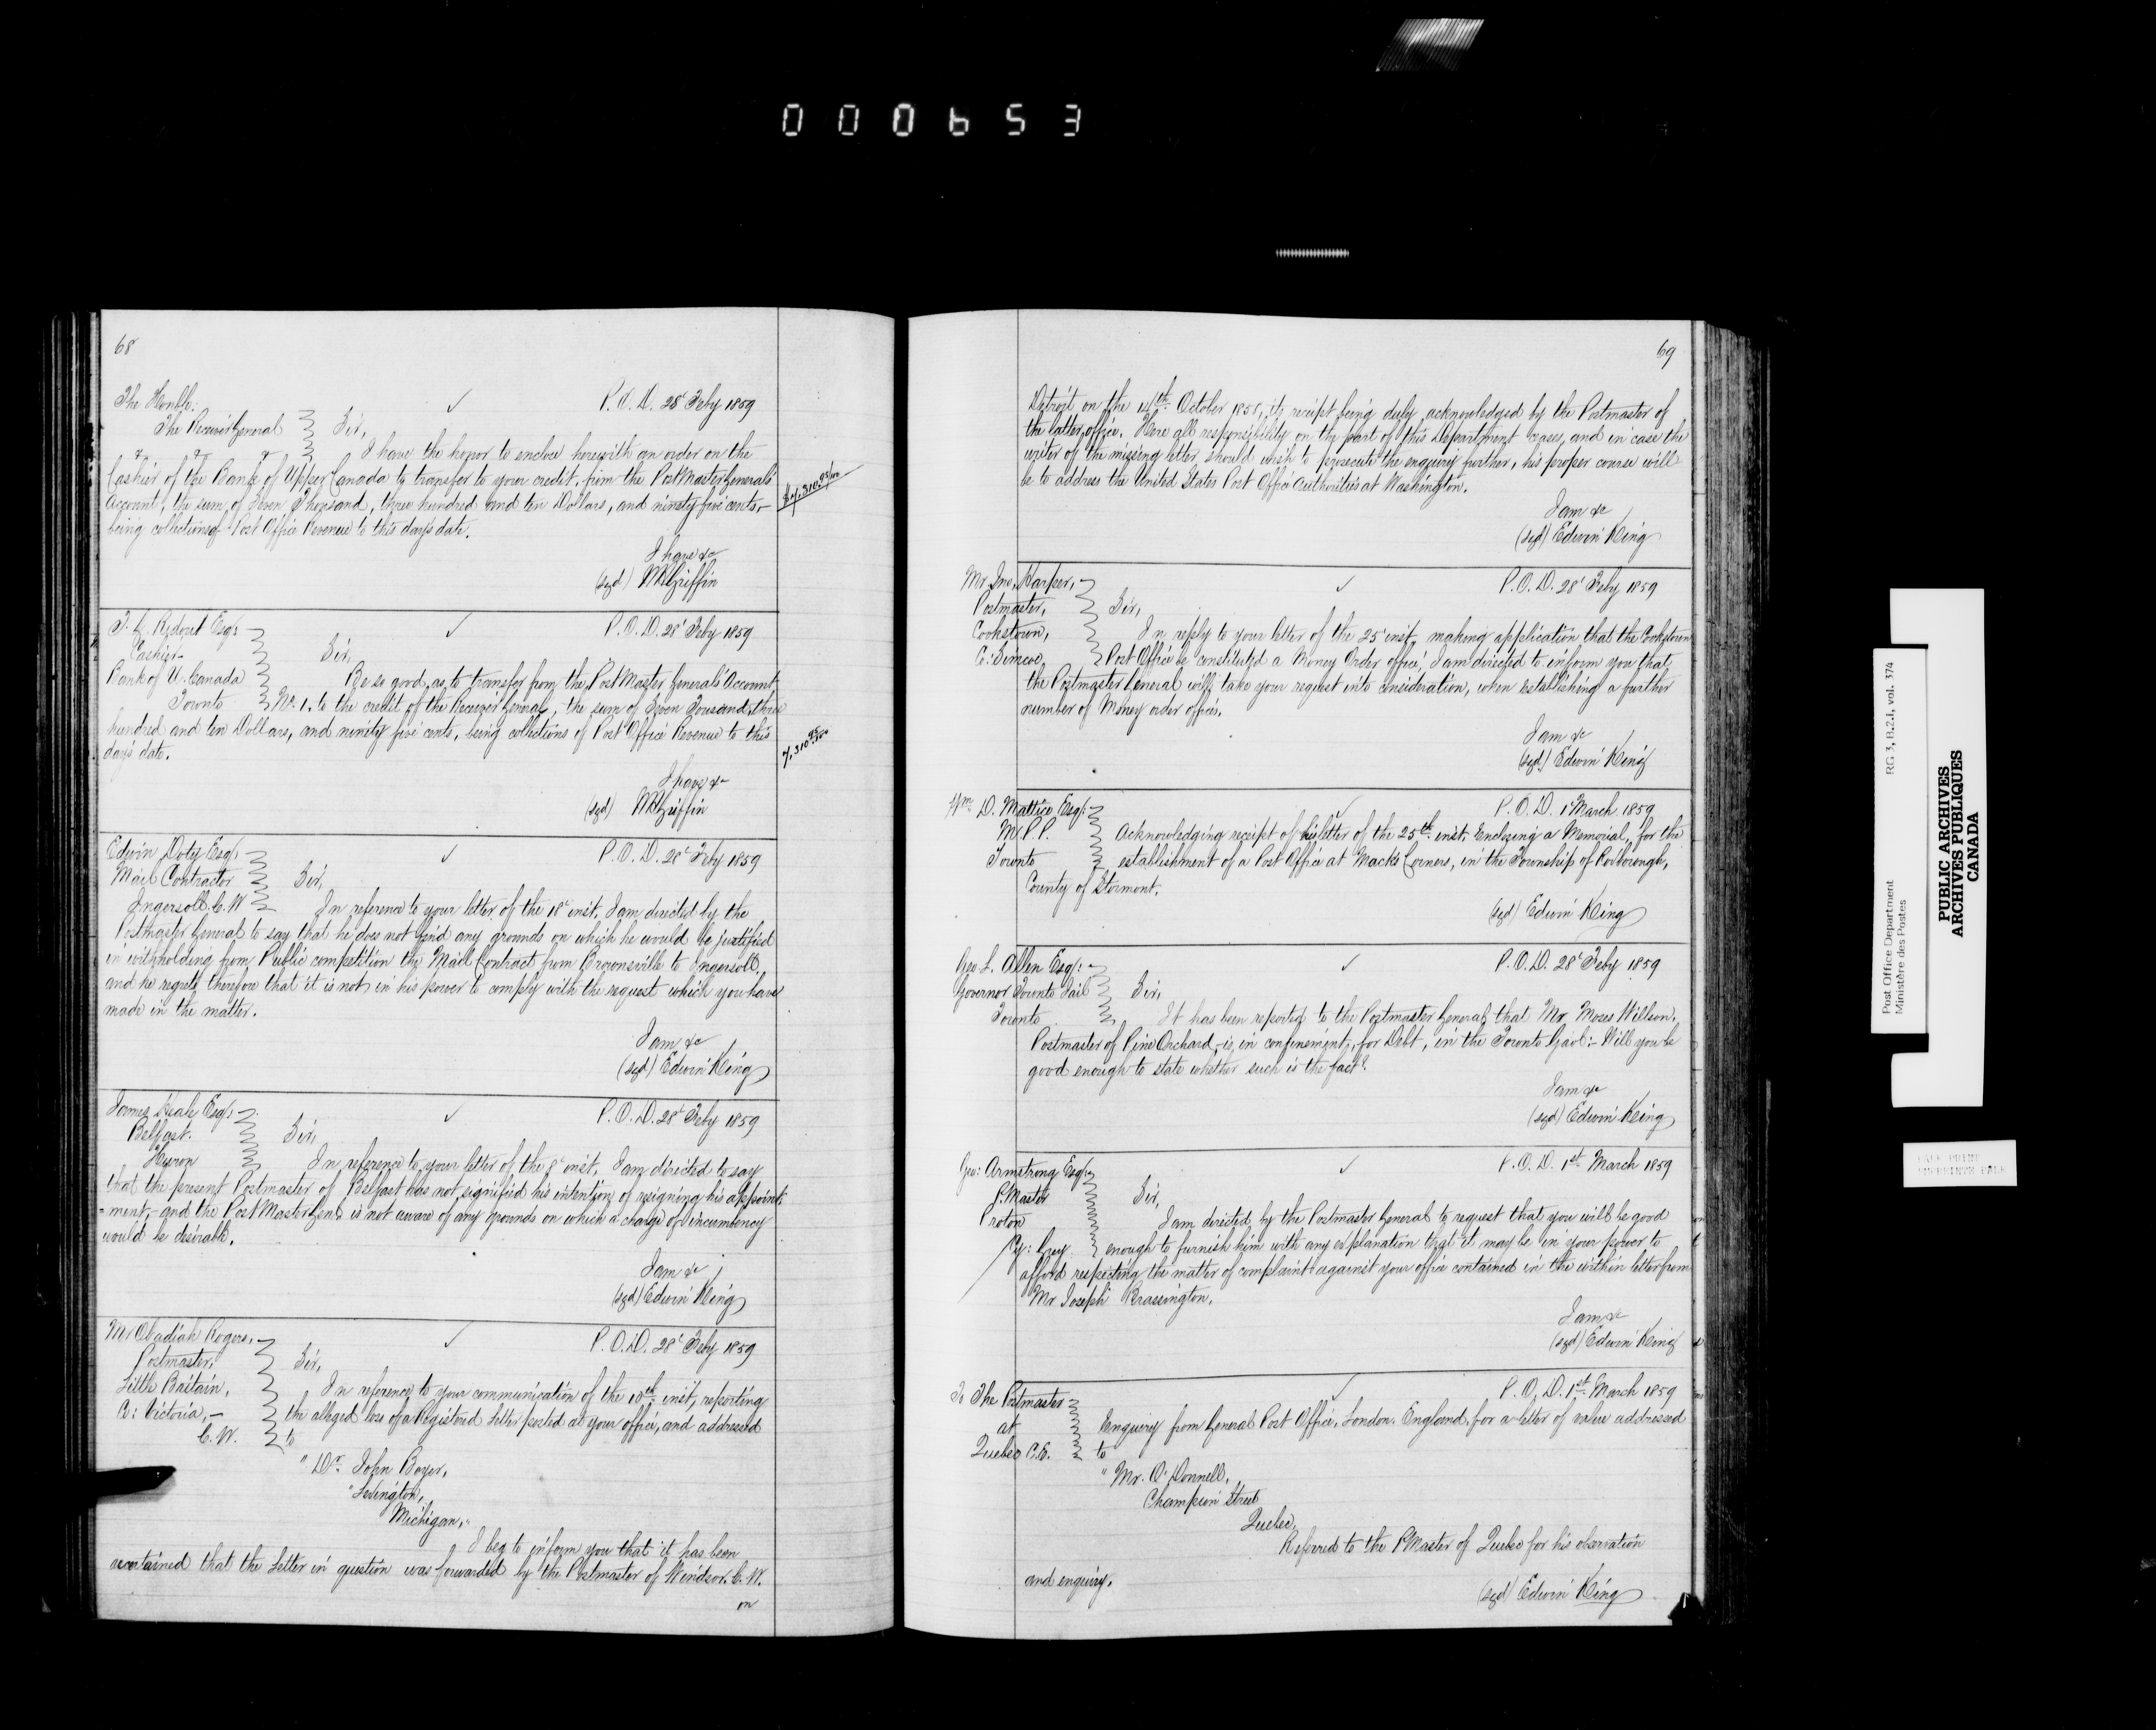 000653
68
The Honble:
The Receiver General
✓
P.O.D. 28' Feby 1859
Sir,
I have the honor to enclose herewith an order on the
Cashier of the Bank of Upper Canada to transfer to your credit, from the Post Master General's
Account, the sum of Seven Thousand, three hundred and ten Dollars, and ninety five cents,—
being collections of Post Office Revenue to this day's date.
$7,310.95/100
I have &c
(sgd) WHGriffin
Ridout Esq:
Cashier
Bank of U. Canada
Toronto
✓
P.O.D. 28' Feby 1859
Sir,
Be so good as to transfer from the Post Master General's Account
No. 1, to the credit of the Receiver General, the sum of Seven Tousand, three
hundred and ten Dollars, and ninety five cents, being collections of Post Office Revenue to this
day's date.
7,310 95/100
I have &c
(sgd) WHGriffin
Edwin Doty Esq:
Mail Contractor
Ingersoll. C.W
✓
P.O.D. 28' Feby 1859
Sir,
In reference to your letter of the 18' inst. I am directed by the
Postmaster General to say that he does not find any grounds on which he would be justified
in withholding from Public competition the Mail Contract from Brownsville to Ingersoll,
and he regrets therefore that it is not in his power to comply with the request which you have
made in the matter.
I am &c
(sgd) Edwin King
James Esq:
Belfast.
Huron
✓
P.O.D. 28' Feby 1859
Sir,
In reference to your letter of the 8' inst. I am directed to say
that the present Postmaster of Belfast has not signified his intention of resigning his appoint-
=ment,— and the Post Master Genl is not aware of any grounds on which a change of incumbency
would be desirable.
I am &c
(sgd) Edwin King
Mr Obadiah Rogers,
Postmaster,
Little Britain,
Co: Victoria,—
C.W.
✓
P.O.D. 28' Feby 1859
Sir,
In reference to your communication of the 10th inst, reporting
the alleged loss of a Registered Letter posted at your office, and addressed
to
"Dr. John Boyer,
"Lexington,
Michigan,"
I beg to inform you that it has been
ascertained that the Letter in question was forwarded by the Postmaster of Windsor. C.W.
on
69
Detroit on the 14th October 1858, its receipt being duly acknowledged by the Postmaster of
the latter office. Here all responsibility on the part of this Department ceases, and in case the
writer of the missing letter should wish to prosecute the enquiry further, his proper course will
be to address the United States Post Office authorities at Washington.
I am &c
(sgd) Edwin King
Mr Jno. Harper,
Postmaster,
Cookstown,
Co: Simcoe,
✓
P.O.D. 28' Feby 1859
Sir,
In reply to your letter of the 25' inst, making application that the Cookstown
Post Office be constituted a Money Order office, I am directed to inform you that
the Postmaster General will take your request into consideration, when establishing a further
number of Money order offices.
I am &c
(sgd) Edwin King
Wm. D. Mattice Esq:
M.P.P.
Toronto
✓
P.O.D. 1' March 1859
Acknowledging receipt of his letter of the 25th inst. Enclosing a Memorial, for the
establishment of a Post Office at Mack's Corners, in the Township of Roxborough,
County of Stormont.
(sgd) Edwin King
Geo L. Allen Esq:
Governor Toronto Jail
Toronto
✓
P.O.D. 28' Feby 1859
Sir,
It has been reported to the Postmaster General, that Mr Moses Willson,
Postmaster of Pine Orchard, is, in confinement, for Debt, in the Toronto Gaol:— Will you be
good enough to state whether such is the fact?
I am &c
(sgd) Edwin King
Geo: Armstrong Esq:
P.Master
Proton
Cy: Grey
✓
P.O.D. 1st March 1859
Sir,
I am directed by the Postmaster General to request that you will be good
enough to furnish him with any explanation that it may be in your power to
afford respecting the matter of complaint against your office contained in the within letter from
Mr Joseph Brassington.
I am &c
(sgd) Edwin King
To The Postmaster
at
Quebec C.E.
✓
P.O.D. 1st March 1859
Enquiry from General Post Office, London. England, for a letter of value addressed
to
"Mr. O'Donnell,
Champlain Street
Quebec,
Referred to the P.Master of Quebec for his observation
and enquiry.
(sgd) Edwin King
Post Office Department
Ministère des Postes
RG 3, B.2.1, vol. 374
PUBLIC ARCHIVES
ARCHIVES PUBLIQUES
CANADA